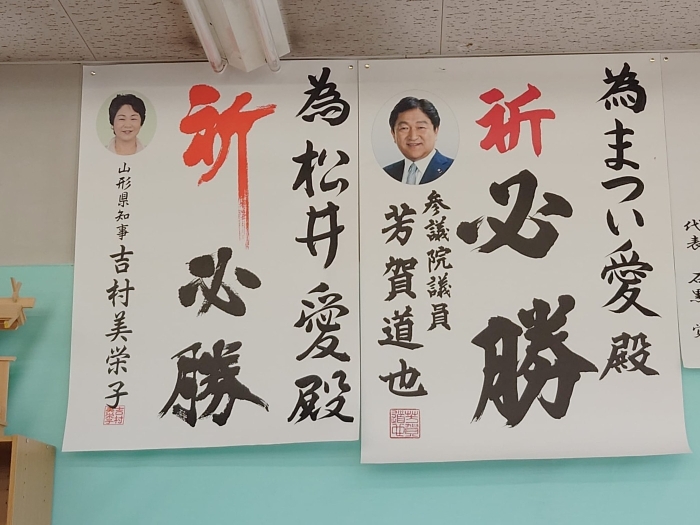 為まつい愛殿
祈必勝
参議院議員
芳賀道也
芳賀道也
為松井愛殿
祈必勝
山形県知事 吉村美栄子
代表